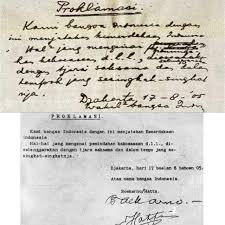 Proklamasi.
Kami bangsa Indonesia dengan
ini menjatakan kemerdekaan Indone
Hal² jang mengenai
kekoeasaan d.l.l.,
dengan tjara saksama
tempoh jang sesingkat-singkat
nja.
Djakarta 17 - 8 - '05
Wakil² bangsa Indo
P R O K L A M A S I
Kami bangsa Indonesia dengan ini menjatakan Kemerdekaan
Indonesia
Hal-hal jang mengenai pemindahan kekoeasaan d.l.l., di-
selenggarakan dengan tjara saksama dan dalam tempo jang se-
singkat-singkatnja.
Djakarta, hari 17 boelan 8 tahoen 05.
Atas nama bangsa Indonesia.
Soekarno/Hatta.